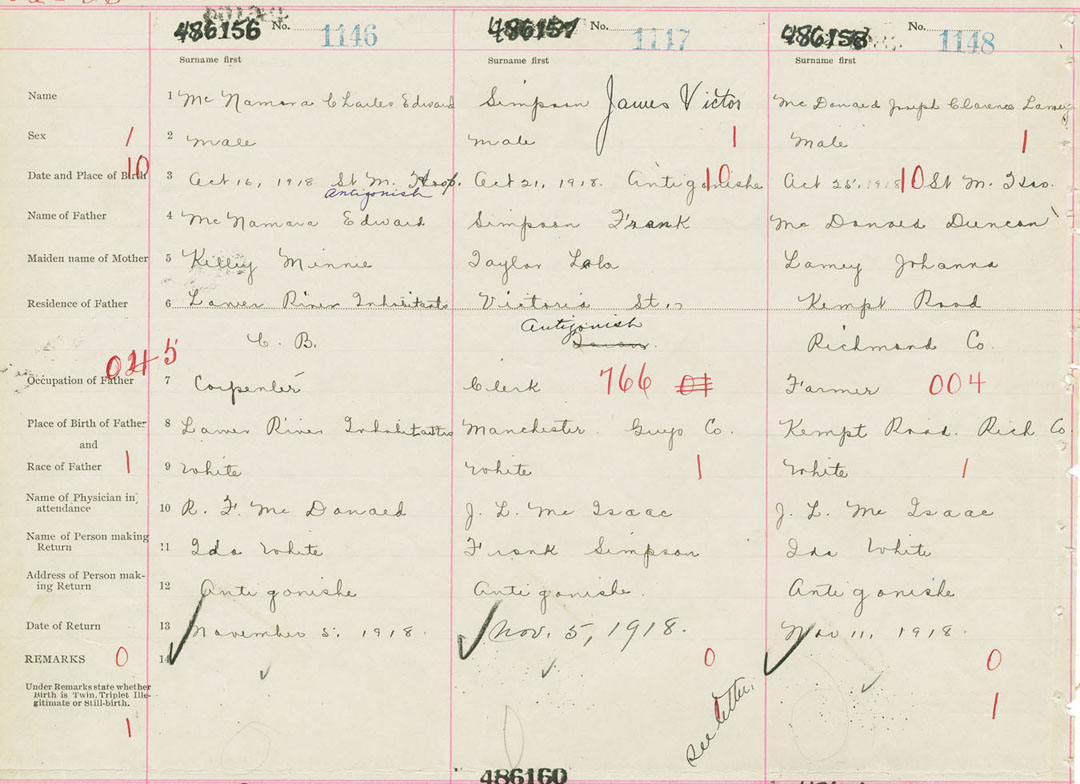 486156 No. 1146 486157 No. 1147 486158 No. 1148
Surname first Surname first Surname first
Name 1 Mc Namara Charles Edward Simpson James Victor Mc Donald Joseph Clarence Lamey
Sex 1 2 male male 1 Male 1
Date and Place of Birth 10 3 Oct 16, 1918 St M. Hosp. Oct 21, 1918. Antigonishe 10 Oct 25, 1918 10 St M. Hso.
Antigonish
Name of Father 4 Mc Namara Edward Simpson Frank Mc Donald Duncan
Maiden name of Mother 5 Kelley Minnie Taylor Lola Lamey Johanna
Residence of Father 6 Lower River Inhabitants Victoria St., Kempt Road
C. B. Antigonish Richmond Co.
045
Occupation of Father 7 Carpenter Clerk 766 01 Farmer 004
Place of Birth of Father 8 Lower River Inhabitants Manchester. Guys Co. Kempt Road. Rich Co
and
Race of Father 1 9 White White 1 White 1
Name of Physician in attendance 10 R. F. Mc Donald J. L. Mc Isaac J. L. Mc Isaac
Name of Person making Return 11 Ida White Frank Simpson Ida White
Address of Person making Return 12 Antigonishe Antigonishe. Antigonishe
Date of Return 13 November 5, 1918. Nov. 5, 1918. Nov 11, 1918.
REMARKS 0 14 0 0
Under Remarks state whether
Birth is Twin, Triplet Ille-
gitimate or Still-birth.
1 see letter. 1
486160